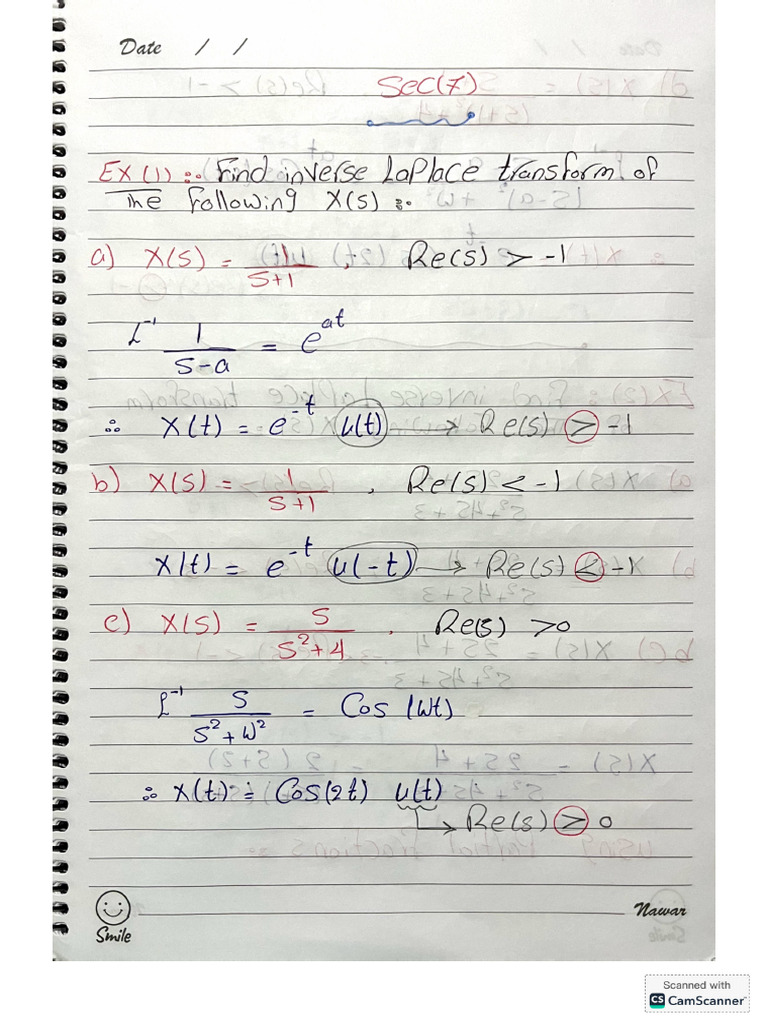 Date / /
Sec(7)
EX (1) :. Find inverse LaPlace transform of
the Following X(S) :.
a) X(S) = 1/(S+1) , Re(S) > -1
L⁻¹ 1/(S-a) = e^at
∴ X(t) = e^-t u(t) → Re(s) > -1
b) X(S) = 1/(S+1) , Re(S) < -1
X(t) = e^-t u(-t) → Re(s) < -1
c) X(S) = S/(S²+4) , Re(s) > 0
L⁻¹ S/(S²+W²) = Cos (Wt)
∴ X(t) = Cos(2t) u(t)
→ Re(s) > 0
Smile
Nawar
Scanned with
CS CamScanner